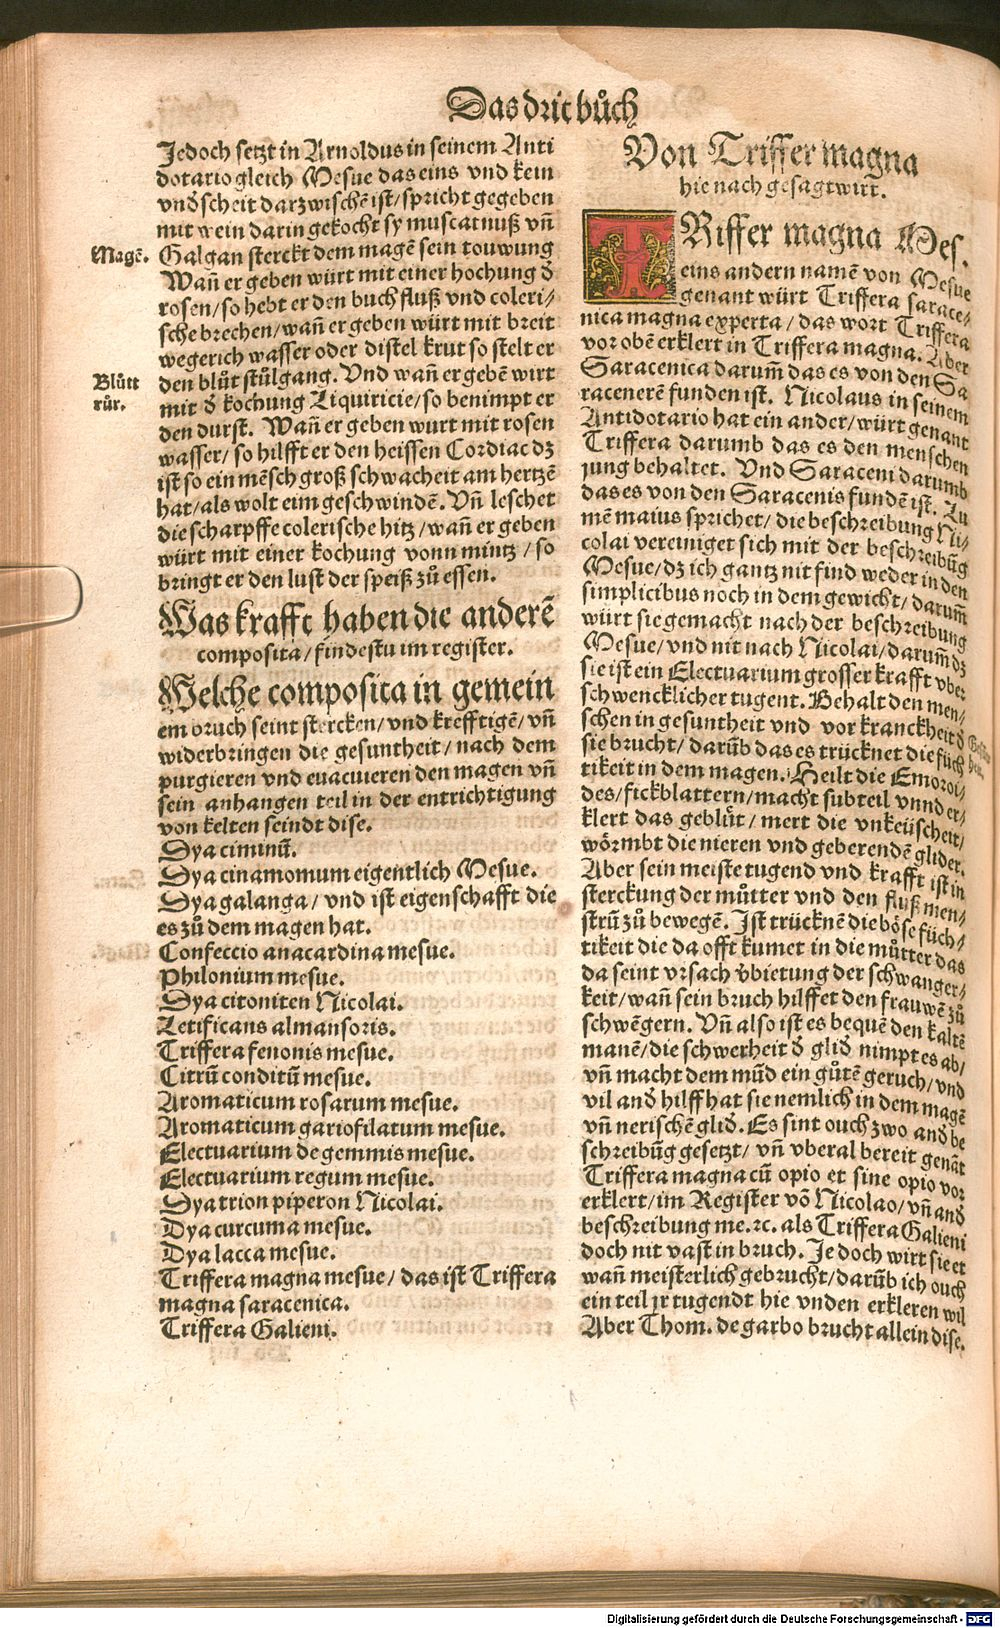 Das drit bůch
Jedoch setzt in Arnoldus in seinem Anti
dotario gleich Mesue das eins vnd kein
vnd̾scheit darzwischē ist/ spricht gegeben
mit wein darin gekocht sy muscat nuß vñ
Magē. Galgan sterckt dem magē sein touwung
Wañ er geben würt mit einer kochung d̾
rosen/ so hebt er den buch fluß vnd coleri/
sche brechen/ wañ er geben würt mit breit
wegerich wasser oder distel krut so stelt er
Blůtt
růr.
den blůt stůlgang. Vnd wañ er gebē wirt
mit d̾ kochung Liquiricie/ so benimpt er
den durst. Wañ er geben wurt mit rosen
wasser/ so hilfft er den heissen Cordiac dz
ist so ein mēsch groß schwacheit am hertzē
hat/ als wolt eim geschwindē. Vñ leschet
die scharpffe colerische hitz/ wañ er geben
würt mit einer kochung vonn mintz/ so
bringt er den lust der speiß zů essen.
Was krafft haben die anderē
composita/ findestu im register.
Welche composita in gemein
em bruch seint stercken/ vnd krefftigē/ vñ
widerbringen die gesuntheit/ nach dem
purgieren vnd euacuieren den magen vñ
sein anhangen teil in der entrichtigung
von kelten seindt dise.
Dya ciminū.
Dya cinamomum eigentlich Mesue.
Dya galanga/ vnd ist eigenschafft die
es zů dem magen hat.
Confeccio anacardina mesue.
Philonium mesue.
Dya citoniten Nicolai.
Letificans almansoris.
Triffera fenonis mesue.
Citrū conditū mesue.
Aromaticum rosarum mesue.
Aromaticum gariofilatum mesue.
Electuarium de gemmis mesue.
Electuarium regum mesue.
Dya trion piperon Nicolai.
Dya curcuma mesue.
Dya lacca mesue.
Triffera magna mesue/ das ist Triffera
magna saracenica.
Triffera Galieni.
Von Triffer magna
hie nach gesagt wirt.
TRiffer magna Mes.
eins andern namē von Mesue
genant würt Triffera sarace/
nica magna experta/ das wort Triffera
vor obē erklert in Triffera magna. Aber
Saracenica darum̃ das es von den Sa
racenerē funden ist. Nicolaus in seinem
Antidotario hat ein ander/ würt genant
Triffera darumb das es den menschen
jung behaltet. Vnd Saraceni darumb
das es von den Saracenis fundē ist. Lu
mē maius sprichet/ die beschreibung Ni/
colai vereiniget sich mit der beschreibūg
Mesue/ dz ich gantz nit find weder in den
simplicibus noch in dem gewicht/ darum̃
würt sie gemacht nach der beschreibung
Mesue/ vnd nit nach Nicolai/ darum̃ dz
sie ist ein Electuarium grosser krafft vber
schwencklicher tugent. Behalt den men/
schen in gesuntheit vnd vor kranckheit d̾
sie brucht/ darūb das es trücknet die füch
tikeit in dem magen. Heilt die Emoroi/
des/ fickblattern/ macht subteil vnnd er/
klert das geblüt/ mert die vnkeüscheit/
wörmbt die nieren und geberendē glider.
Aber sein meiste tugend vnd krafft ist in
sterckung der můtter vnd den fluß men/
strū zů bewegē. Ist trücknē die böse füch/
tikeit die da offt kumet in die můtter das
da seint vrsach v̾bietung der schwanger/
keit/ wañ sein bruch hilffet den frauwē zů
schwēgern. Vñ also ist es bequē den kaltē
manē/ die schwerheit d̾ glid̾ nimpt es ab/
vñ macht dem mūd ein gůtē geruch/ vnd
vil and̾ hilff hat sie nemlich in dem magē
vñ nerischē glid̾. Es sint ouch zwo and̾ be
schreibūg gesetzt/ vñ vberal bereit genāt
Triffera magna cū opio et sine opio vor
erklert/ im Register vō Nicolao/ vñ and̾
beschreibung me. ꝛc. als Triffera Galieni
doch nit vast in bruch. Je doch wirt sie et
wañ meisterlich gebrucht/ darūb ich ouch
ein teil jr tugendt hie vnden erkleren wil
Aber Thom. de garbo brucht allein dise.
Digitalisierung gefördert durch die Deutsche Forschungsgemeinschaft - DFG